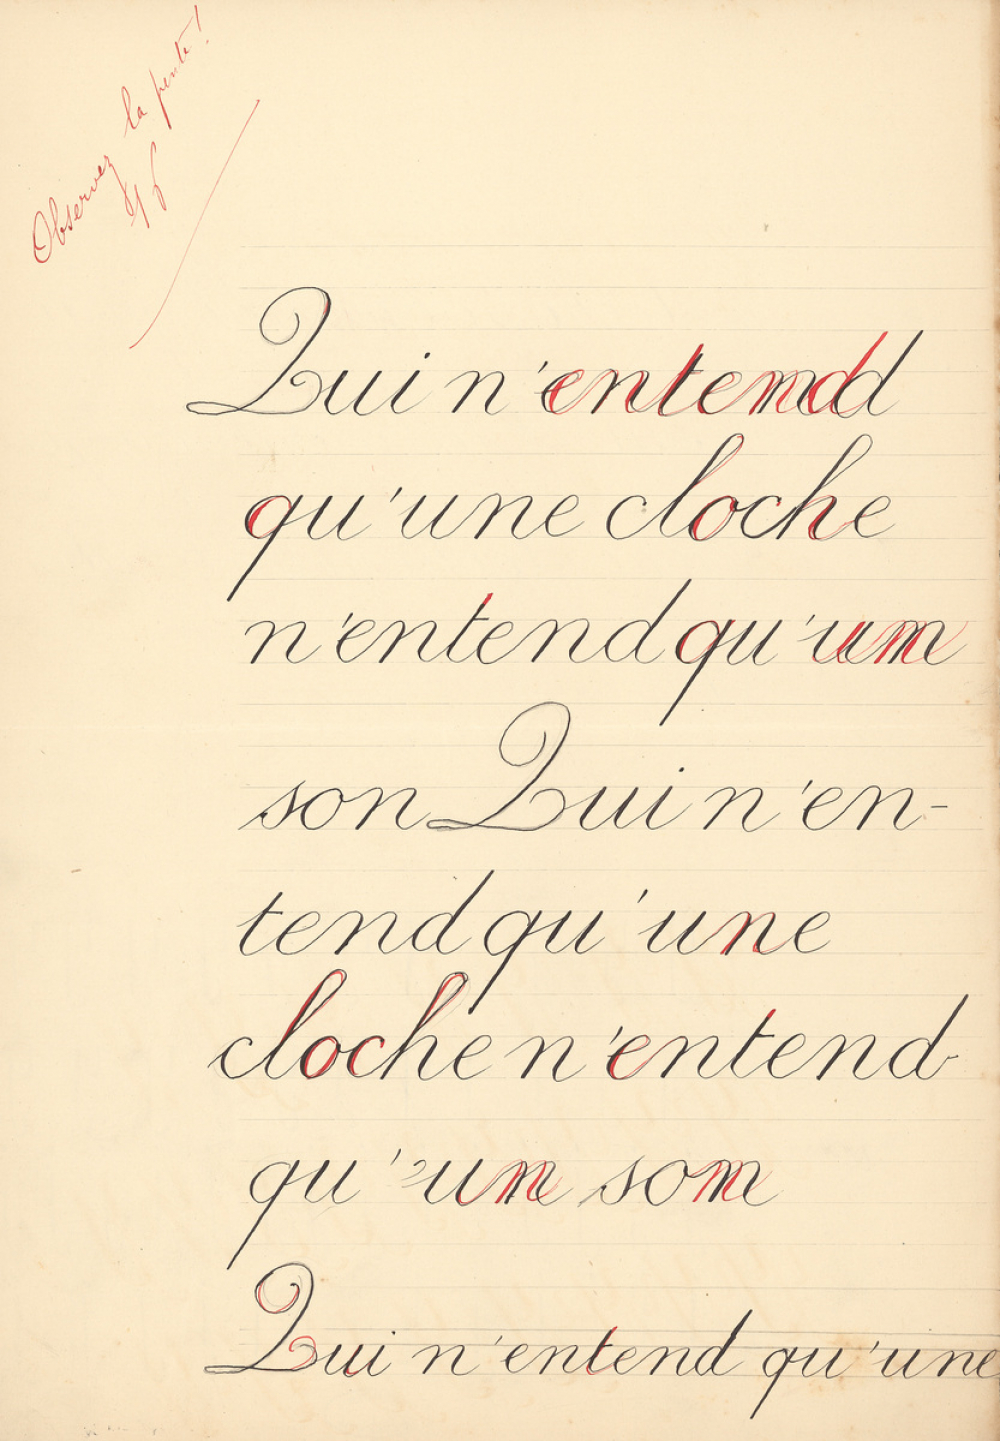 Observez la pente!
Qui n'entend
qu'une cloche
n'entend qu'un
son Qui n'en-
tend qu'une
cloche n'entend
qu'un son
Qui n'entend qu'une